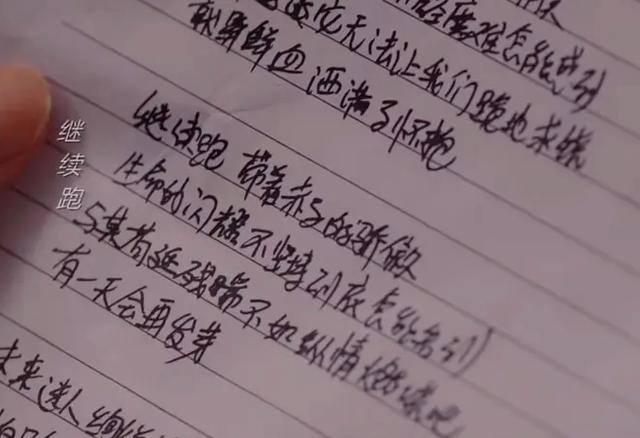 难怎能感到
运它无法让我们跪地求饶
就算鲜血 洒满了怀抱
继续跑 带着赤子的骄傲
生命的闪耀不坚持到底怎能看到
与其苟延残喘不如纵情燃烧吧
有一天会再发芽
未来迷人绚
继续跑